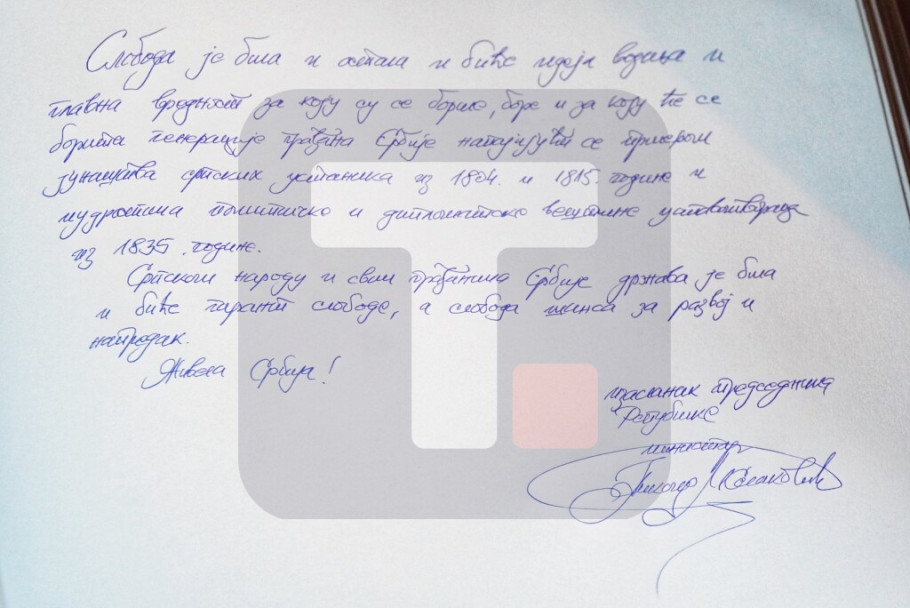 Слобода је била и остала и биће идеја водиља и
главна вредност за коју су се бориле, боре и за коју ће се
борити генерације грађана Србије надахњујући се примером
јунаштва српских устаника из 1804. и 1815. године и
мудростима политичке и дипломатске вештине уставотвораца
из 1835. године.
Српском народу и свим грађанима Србије држава је била
и биће гарант слободе, а слобода шанса за развој и
напредак.
Живела Србија!
изасланик председника
Републике
министар